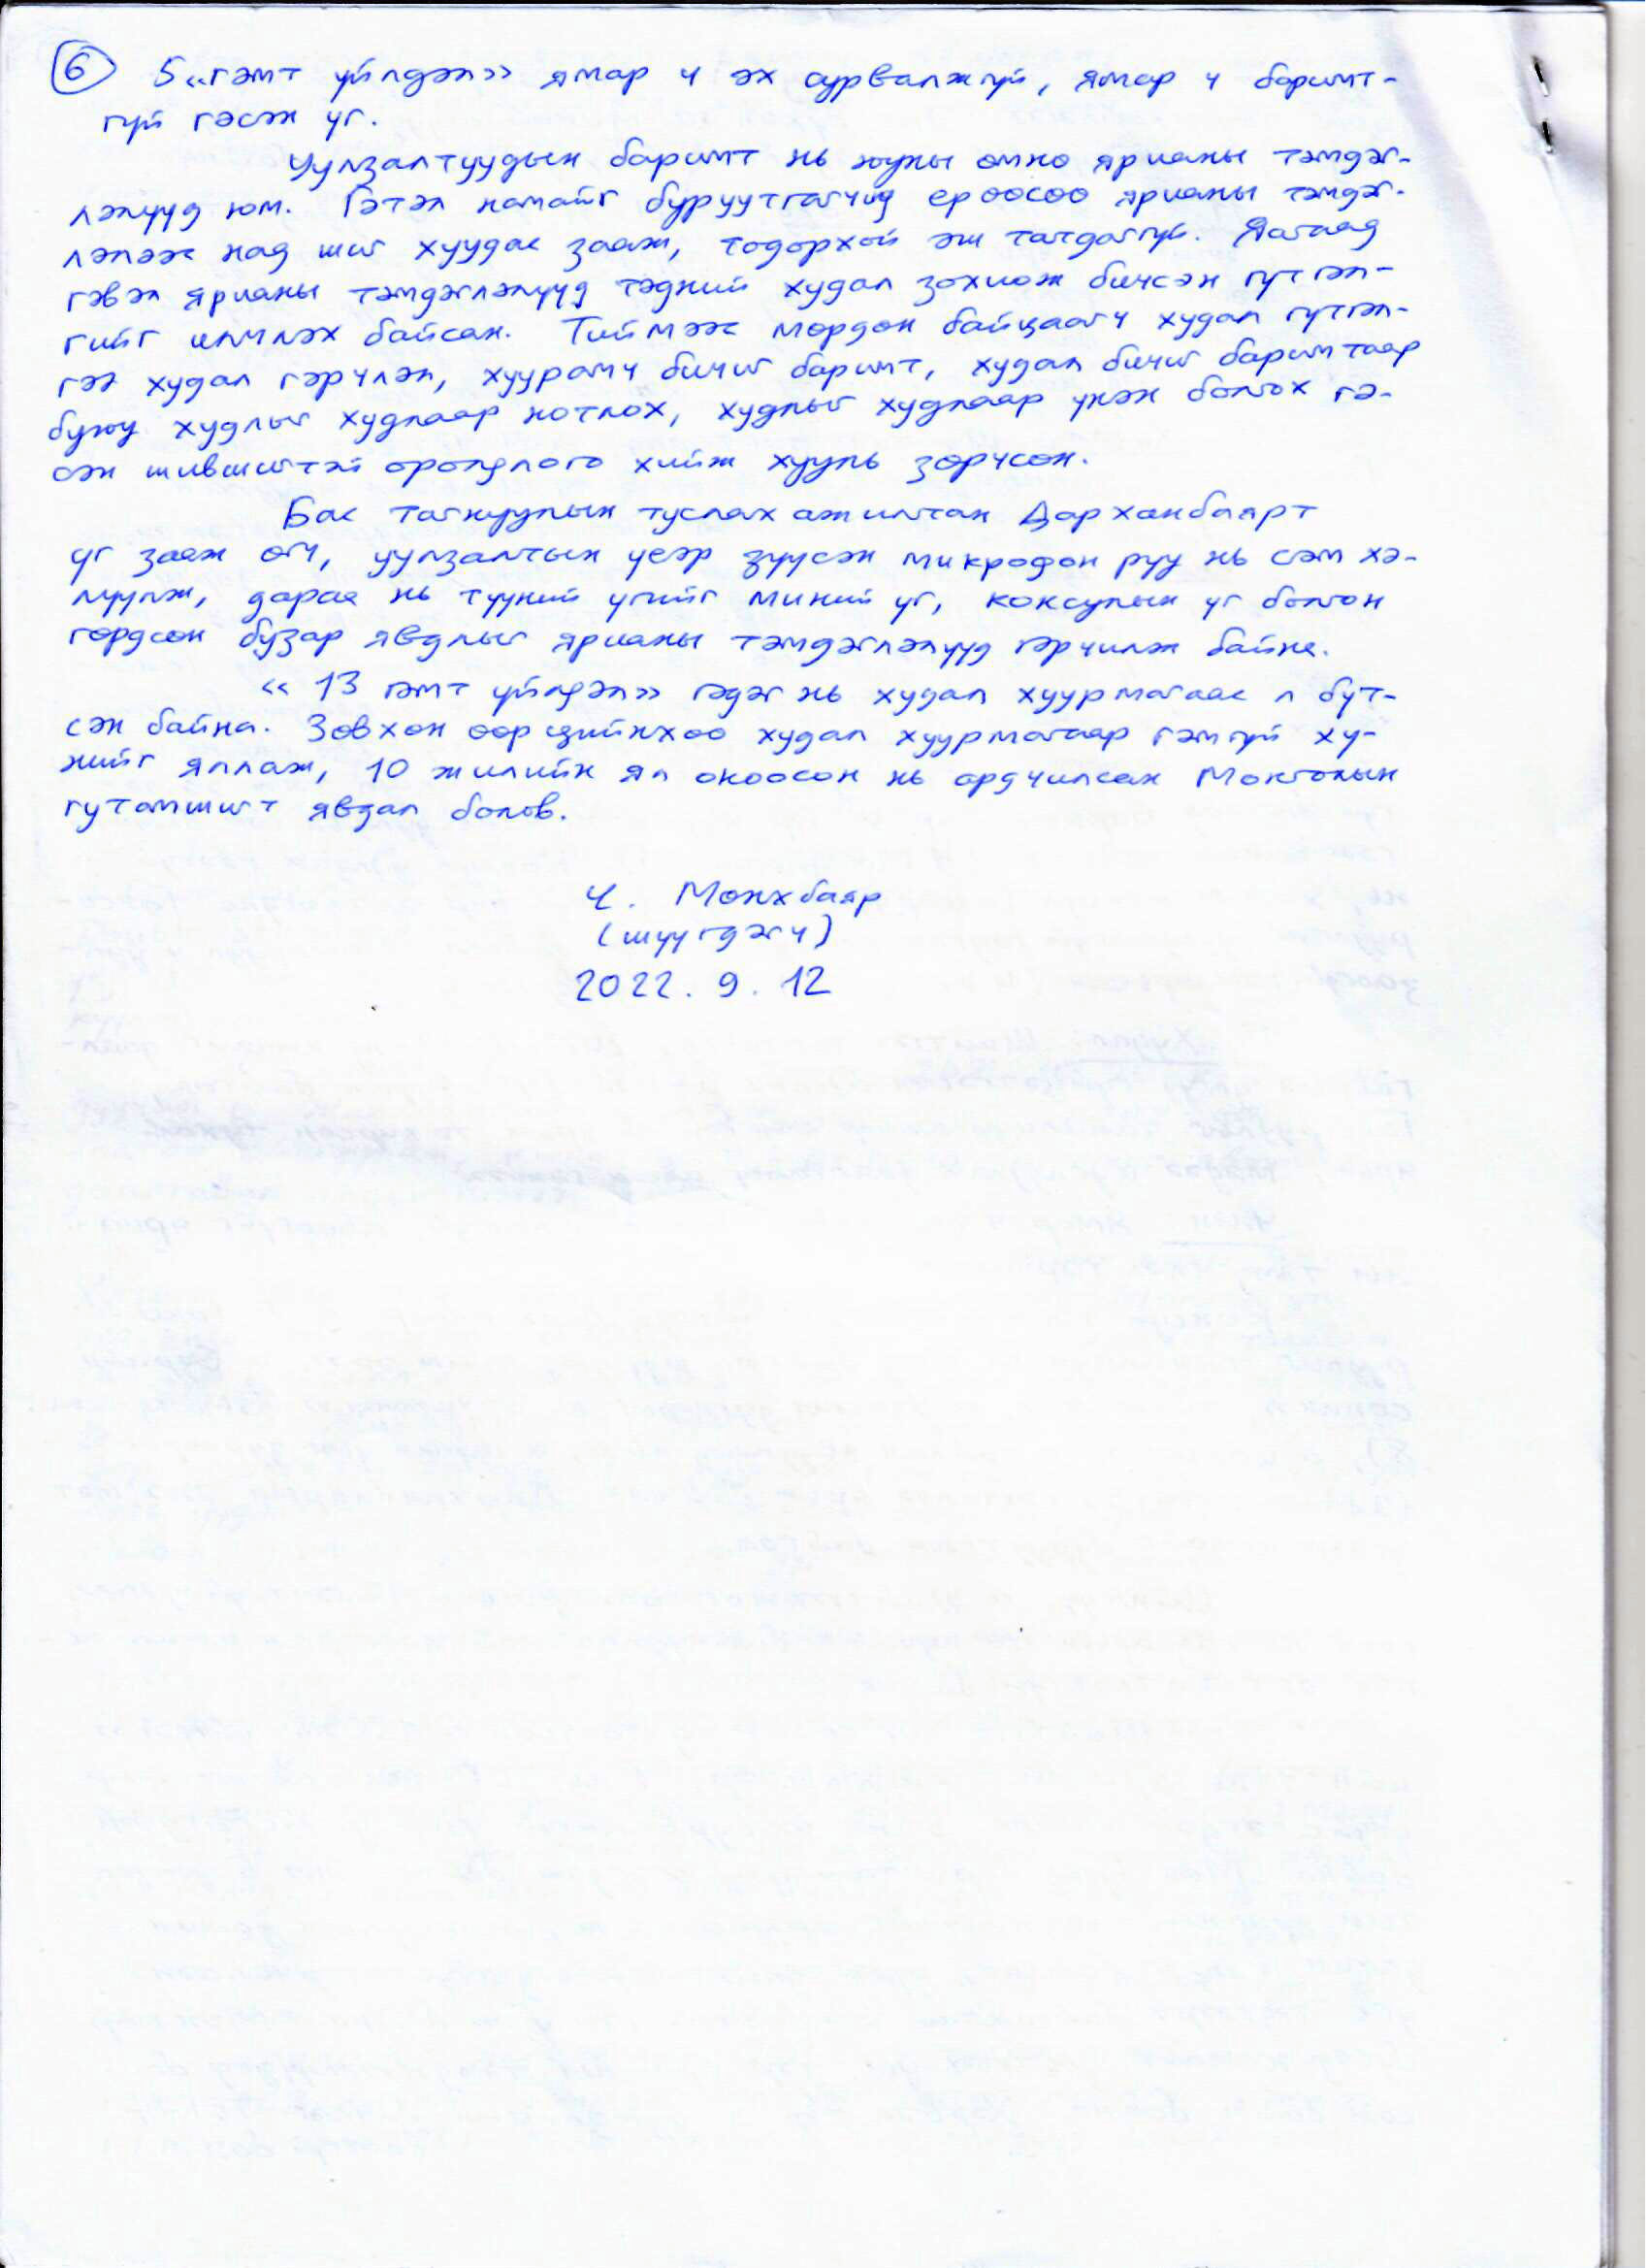 ⑥ 5 «гэмт үйлдэл» ямар ч эх сурвалжгүй, ямар ч баримт-
гүй гэсэн үг.
Уулзалтуудын баримт нь юуны өмнө ярианы тэмдэг-
лэлүүд юм. Гэтэл намайг буруутгагчид ерөөсөө ярианы тэмдэг-
лэлээс над шиг хуудас зааж, тодорхой эш татдаггүй. Яагаад
гэвэл ярианы тэмдэглэлүүд тэдний худал зохиож бичсэн гүтгэл-
гийг илчлэх байсан. Тиймээс мөрдөн байцаагч худал гүтгэл-
гээ худал гэрчлэл, хуурамч бичиг баримт, худал бичиг баримтаар
буюу худлыг худлаар нотлох, худлыг худлаар үнэн болгох гэ-
сэн шившигтэй оролдлого хийж хууль зөрчсөн.
Бас тагнуулын туслах ажилтан Дарханбаярт
үг зааж өгч, уулзалтын үеэр зүүсэн микрофон руу нь сэм хэ-
лүүлж, дараа нь түүний үгийг миний үг, консулын үг болгон
гөрдсөн бузар явдлыг ярианы тэмдэглэлүүд гэрчилж байна.
«13 гэмт үйлдэл» гэдэг нь худал хуурмагаас л бүт-
сэн байна. Зөвхөн өөрсдийнхөө худал хуурмагаар гэмгүй хү-
нийг яллаж, 10 жилийн ял оноосон нь ардчилсан Монголын
гутамшигт явдал болов.
Ч. Мөнхбаяр
(шүүгдэгч)
2022. 9. 12